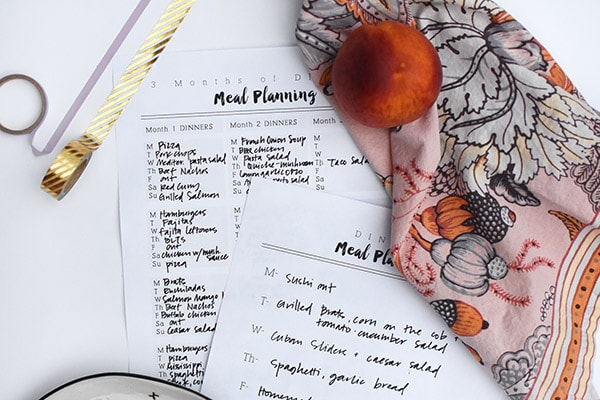 3 Months of D
Meal Planning
Month 1 DINNERS
M Pizza
T Pork chops
W Mediterr. pasta salad
Th Beef Nachos
F out
Sa Red Curry
Su Grilled Salmon
M Hamburgers
T Fajitas
W Fajita leftovers
Th BLTs
F out
Sa chicken w/mush sauce
Su pizza
M Brats
T Enchiladas
W Salmon Mango
Th Beef Nachos
F Buffalo chicken
Sa out
Su Caesar Salad
M Hamburgers
T pizza
W Mississippi
Th Spaghetti
F out
Month 2 DINNERS
M French Onion Soup
T BBQ chicken
W Pasta Salad
Th Quiche-mushroom
F Lemon garlic orzo
Sa pasta salad
Su
M
M
T Taco Salad
W
Th
F
Sa
Su
DIN
Meal Pla
M- Sushi out
T- Grilled Brats, corn on the cob +
tomato-cucumber salad
W- Cuban Sliders + caesar salad
Th- Spaghetti, garlic bread
F- Homemade